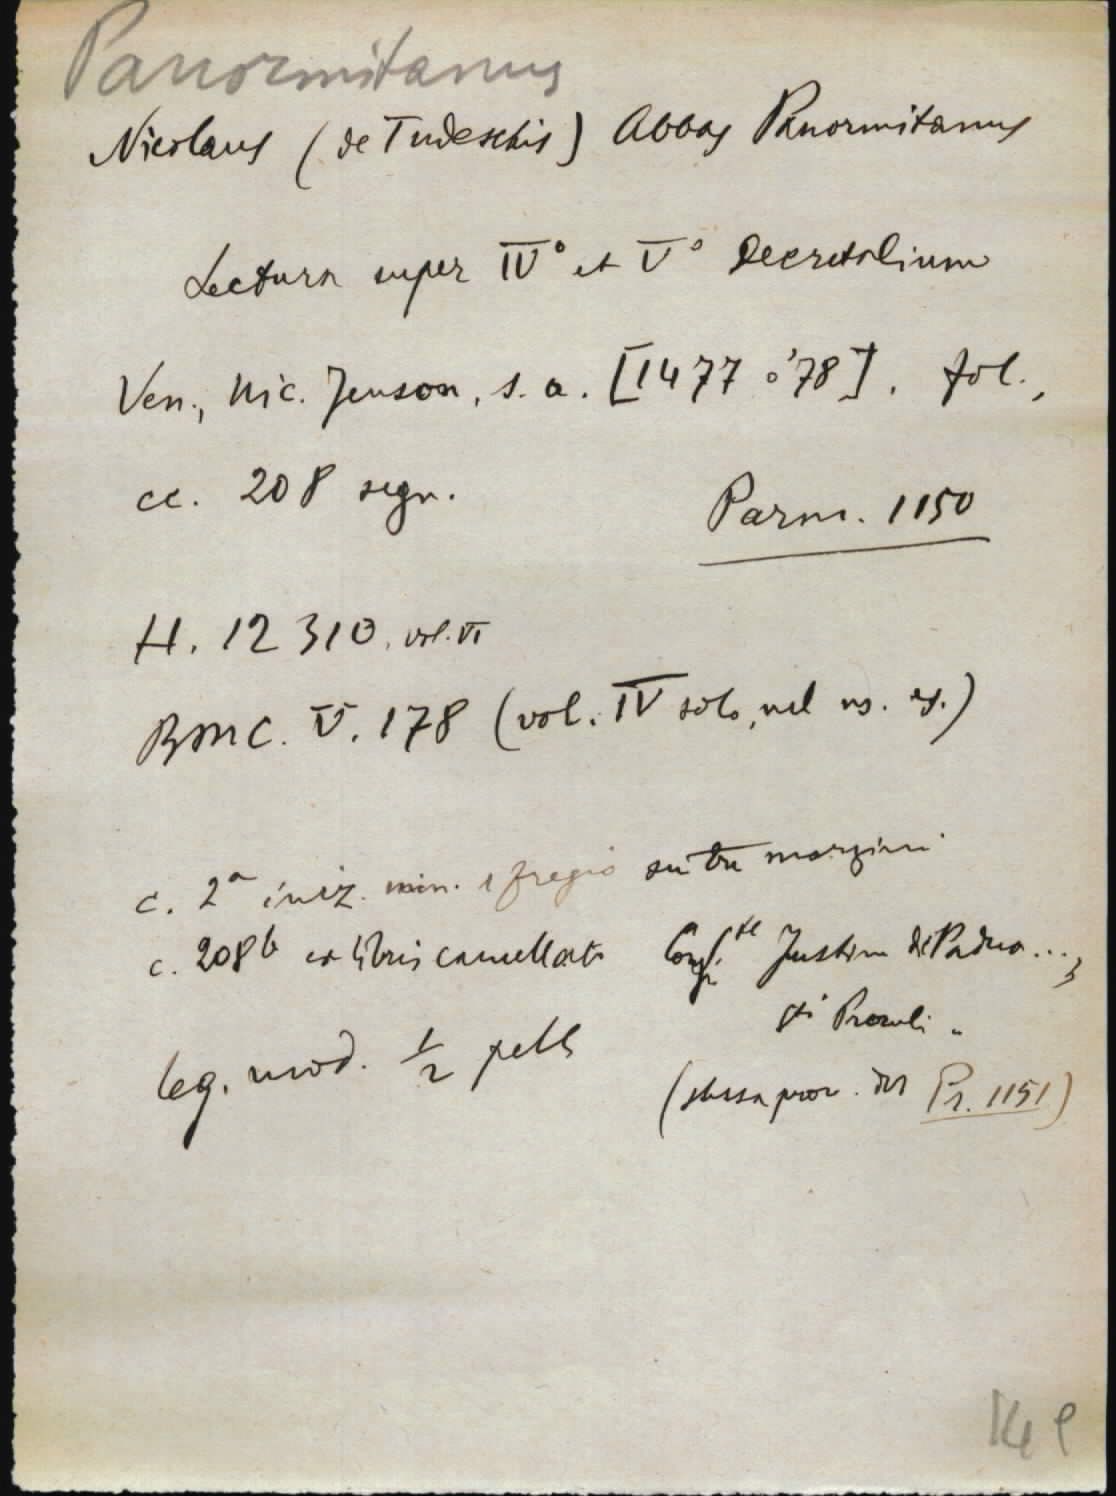 Panormitanus
Nicolaus (de Tudeschis) Abbas Panormitanus
Lectura super IV° et V° Decretalium
Ven., Nic. Jenson, s. a. [1477 o '78]. fol.,
cc. 208 segn.
Parm. 1150
H. 12310. vol. VI
BMC. V. 178 (vol. IV solo, nel ns. es.)
c. 2ª iniz. min. e fregio su tre margini
c. 208b ex libris cancellato Justine di Padua ...,
leg. mod. ½ pelle
(stessa prov. del Pr. 1151)